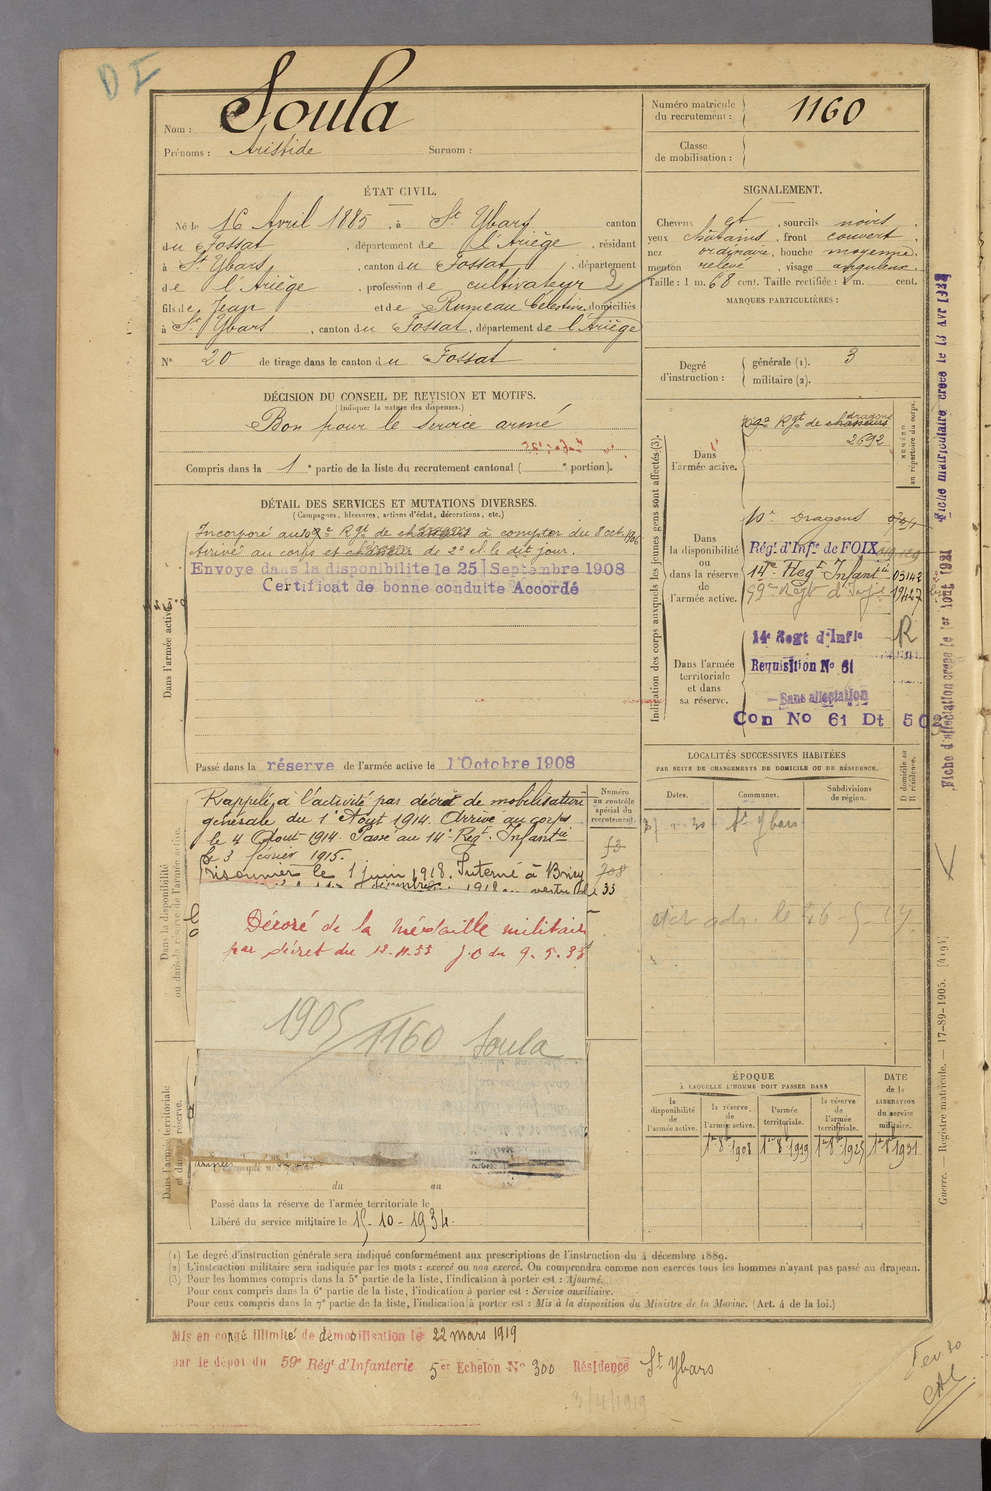 DI
Nom : Soula
Prénoms : Aristide Surnom :
Numéro matricule du recrutement : 1160
Classe de mobilisation :
ÉTAT CIVIL.
Né le 16 Avril 1885, à St Ybars, canton
du Fossat, département de l'Ariège, résidant
à St Ybars, canton du Fossat, département
de l'Ariège, profession de cultivateur
fils de Jean et de Rumeau Célestine, domiciliés
à St Ybars, canton du Fossat, département de l'Ariège
N° 20 de tirage dans le canton du Fossat
SIGNALEMENT.
Cheveux et, sourcils noirs,
yeux châtains, front couvert,
nez ordinaire, bouche moyenne,
menton relevé, visage anguleux.
Taille : 1 m. 68 cent. Taille rectifiée : 1 m. cent.
MARQUES PARTICULIÈRES :
Degré d'instruction : générale (1). 3
militaire (2).
DÉCISION DU CONSEIL DE REVISION ET MOTIFS.
(Indiquer la nature des dispenses.)
Bon pour le service armé
Compris dans la 1e partie de la liste du recrutement cantonal ( e portion).
DÉTAIL DES SERVICES ET MUTATIONS DIVERSES.
(Campagnes, blessures, actions d'éclat, décorations, etc.)
Incorporé au Rgt de chasseurs à compter du 8 oct. 1906
Arrivé au corps et de 2e cl. le dit jour.
Envoye dans la disponibilite le 25 Septembre 1908
Certificat de bonne conduite Accordé
Dans l'armée active.
Passé dans la réserve de l'armée active le 1 Octobre 1908
Indication des corps auxquels les jeunes gens sont affectés (3).
NUMÉRO au répertoire du corps.
Dans l'armée active.
Rgt de chasseurs dragons
2692
Dans la disponibilité ou dans la réserve de l'armée active.
10e Dragons
Rég. d'Infie de FOIX
14e Regt Infantie 05142
59e Regt d'Infie 19427
Dans l'armée territoriale et dans sa réserve.
14e Regt d'Infie R
Requisition No 61
Sans affectation
Con No 61 Dt 502
Fiche matriculaire créée le 13 Avr
Fiche d'affectation créée le 1er Août 1921
Dans la disponibilité ou dans la réserve de l'armée active.
Rappelé à l'activité par décret de mobilisation
générale du 1er Août 1914. Arrivé au corps
le 4 Aout 1914. Passé au 14e Regt. Infantie
le 3 février 1915.
Prisonnier le 1 juin 1918. Interné à Briey
décembre 1918
Numéro au contrôle spécial du recrutement.
708
33
Décoré de la médaille militaire
par décret du J.O du 9.5.33
1905/1160 Soula
Dans l'armée territoriale et dans sa réserve.
du au
Passé dans la réserve de l'armée territoriale le
Libéré du service militaire le 15-10-1934.
LOCALITÉS SUCCESSIVES HABITÉES
PAR SUITE DE CHANGEMENTS DE DOMICILE OU DE RÉSIDENCE.
Dates. Communes. Subdivisions de région. D domicile ou R résidence.
St Ybars
ÉPOQUE
À LAQUELLE L'HOMME DOIT PASSER DANS
DATE de la LIBÉRATION du service militaire.
la disponibilité de l'armée active. la réserve de l'armée active. l'armée territoriale. la réserve de l'armée territoriale.
1908 1925 1931
Guerre. — Registre matricule. — 17-89-1905.
(1) Le degré d'instruction générale sera indiqué conformément aux prescriptions de l'instruction du 4 décembre 1889.
(2) L'instruction militaire sera indiquée par les mots : exercé ou non exercé. On comprendra comme non exercés tous les hommes n'ayant pas passé au drapeau.
(3) Pour les hommes compris dans la 5e partie de la liste, l'indication à porter est : Ajourné.
Pour ceux compris dans la 6e partie de la liste, l'indication à porter est : Service auxiliaire.
Pour ceux compris dans la 7e partie de la liste, l'indication à porter est : Mis à la disposition du Ministre de la Marine. (Art. 4 de la loi.)
Mis en congé illimité de démobilisation le 22 mars 1919
par le dépôt du 59e Régt d'Infanterie 5e Echelon No 300 Résidence St Ybars
3/4/1919